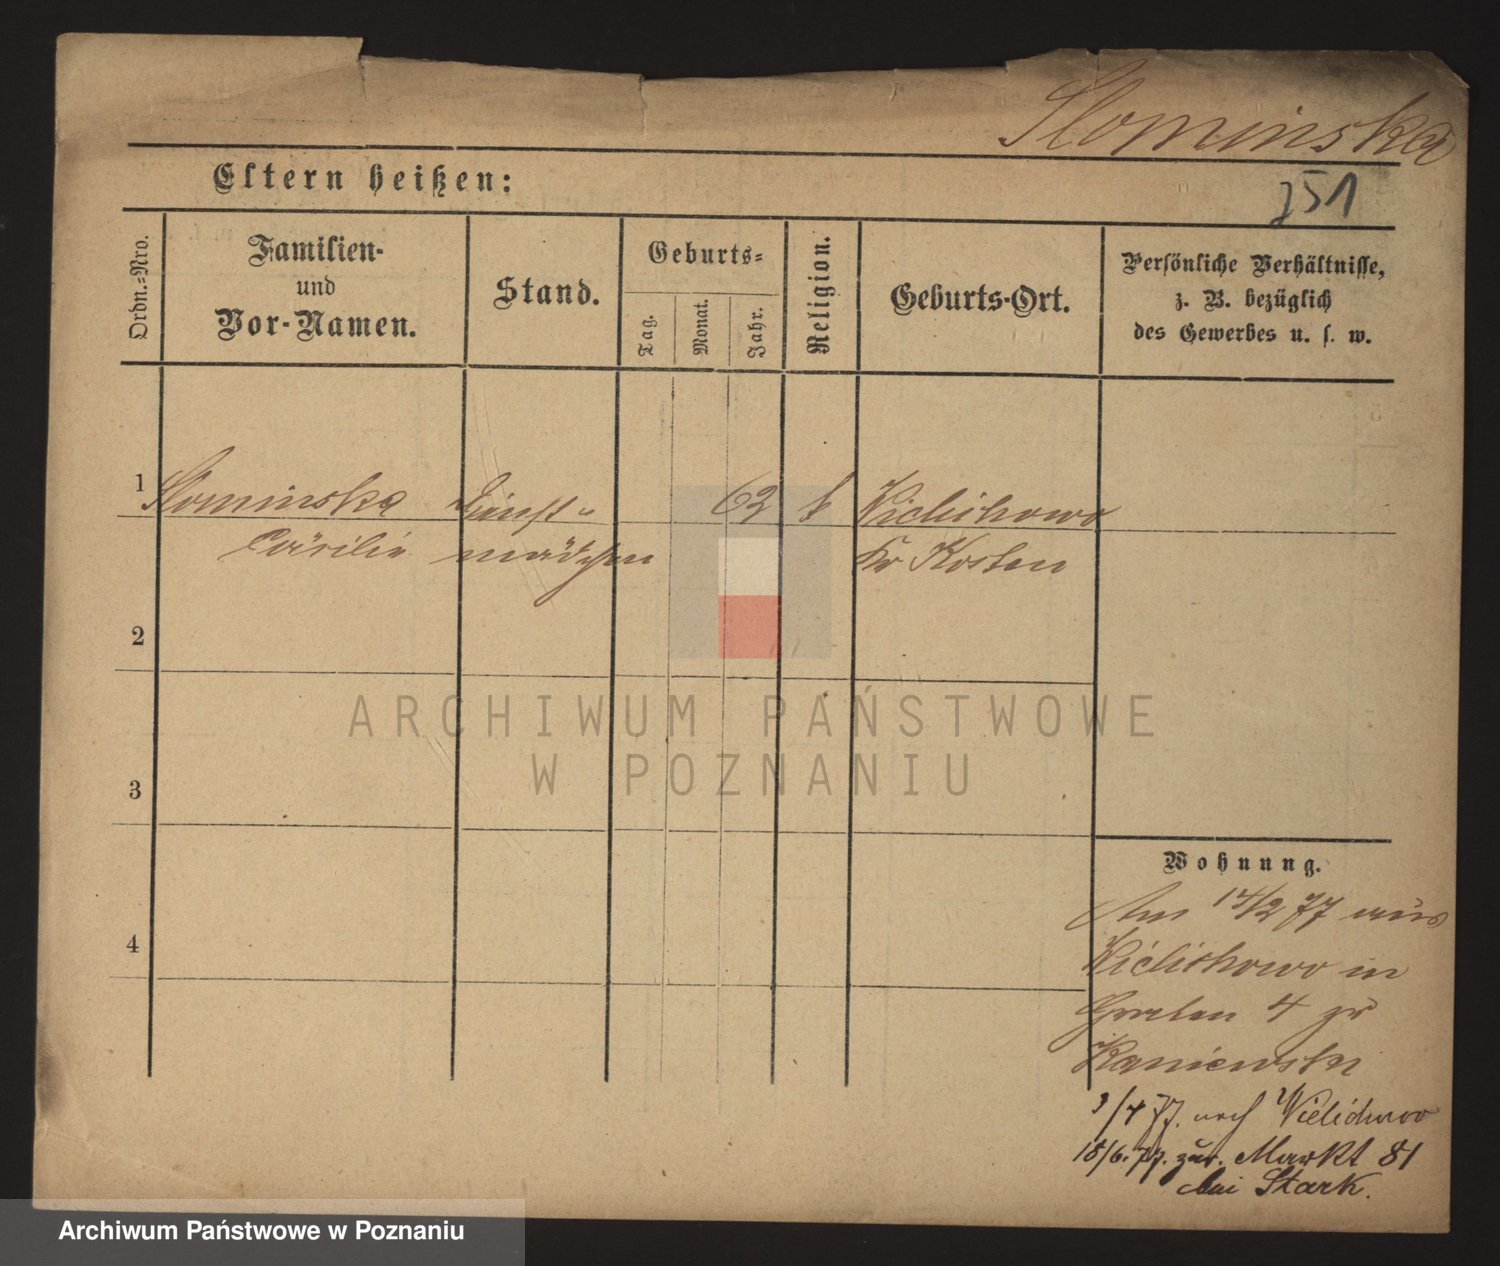 Slominska
Eltern heißen:
751
Ordn.-Nro.
Familien-
und
Vor-Namen.
Stand.
Geburts-
Tag.
Monat.
Jahr.
Religion.
Geburts-Ort.
Persönliche Verhältnisse,
z. B. bezüglich
des Gewerbes u. s. w.
1 Slominska Dienst- 62 k Wielichowo
Cäcilie mädchen Kr Kosten
2
3
4
Wohnung.
Am 14/2 77 aus
Wielichowo in
Graben 4 zu
Kaniewski
3/4 77. nach Wielichowo
18/6. 77. zur. Markt 81
bei Stark.
ARCHIWUM PAŃSTWOWE
W POZNANIU
Archiwum Państwowe w Poznaniu